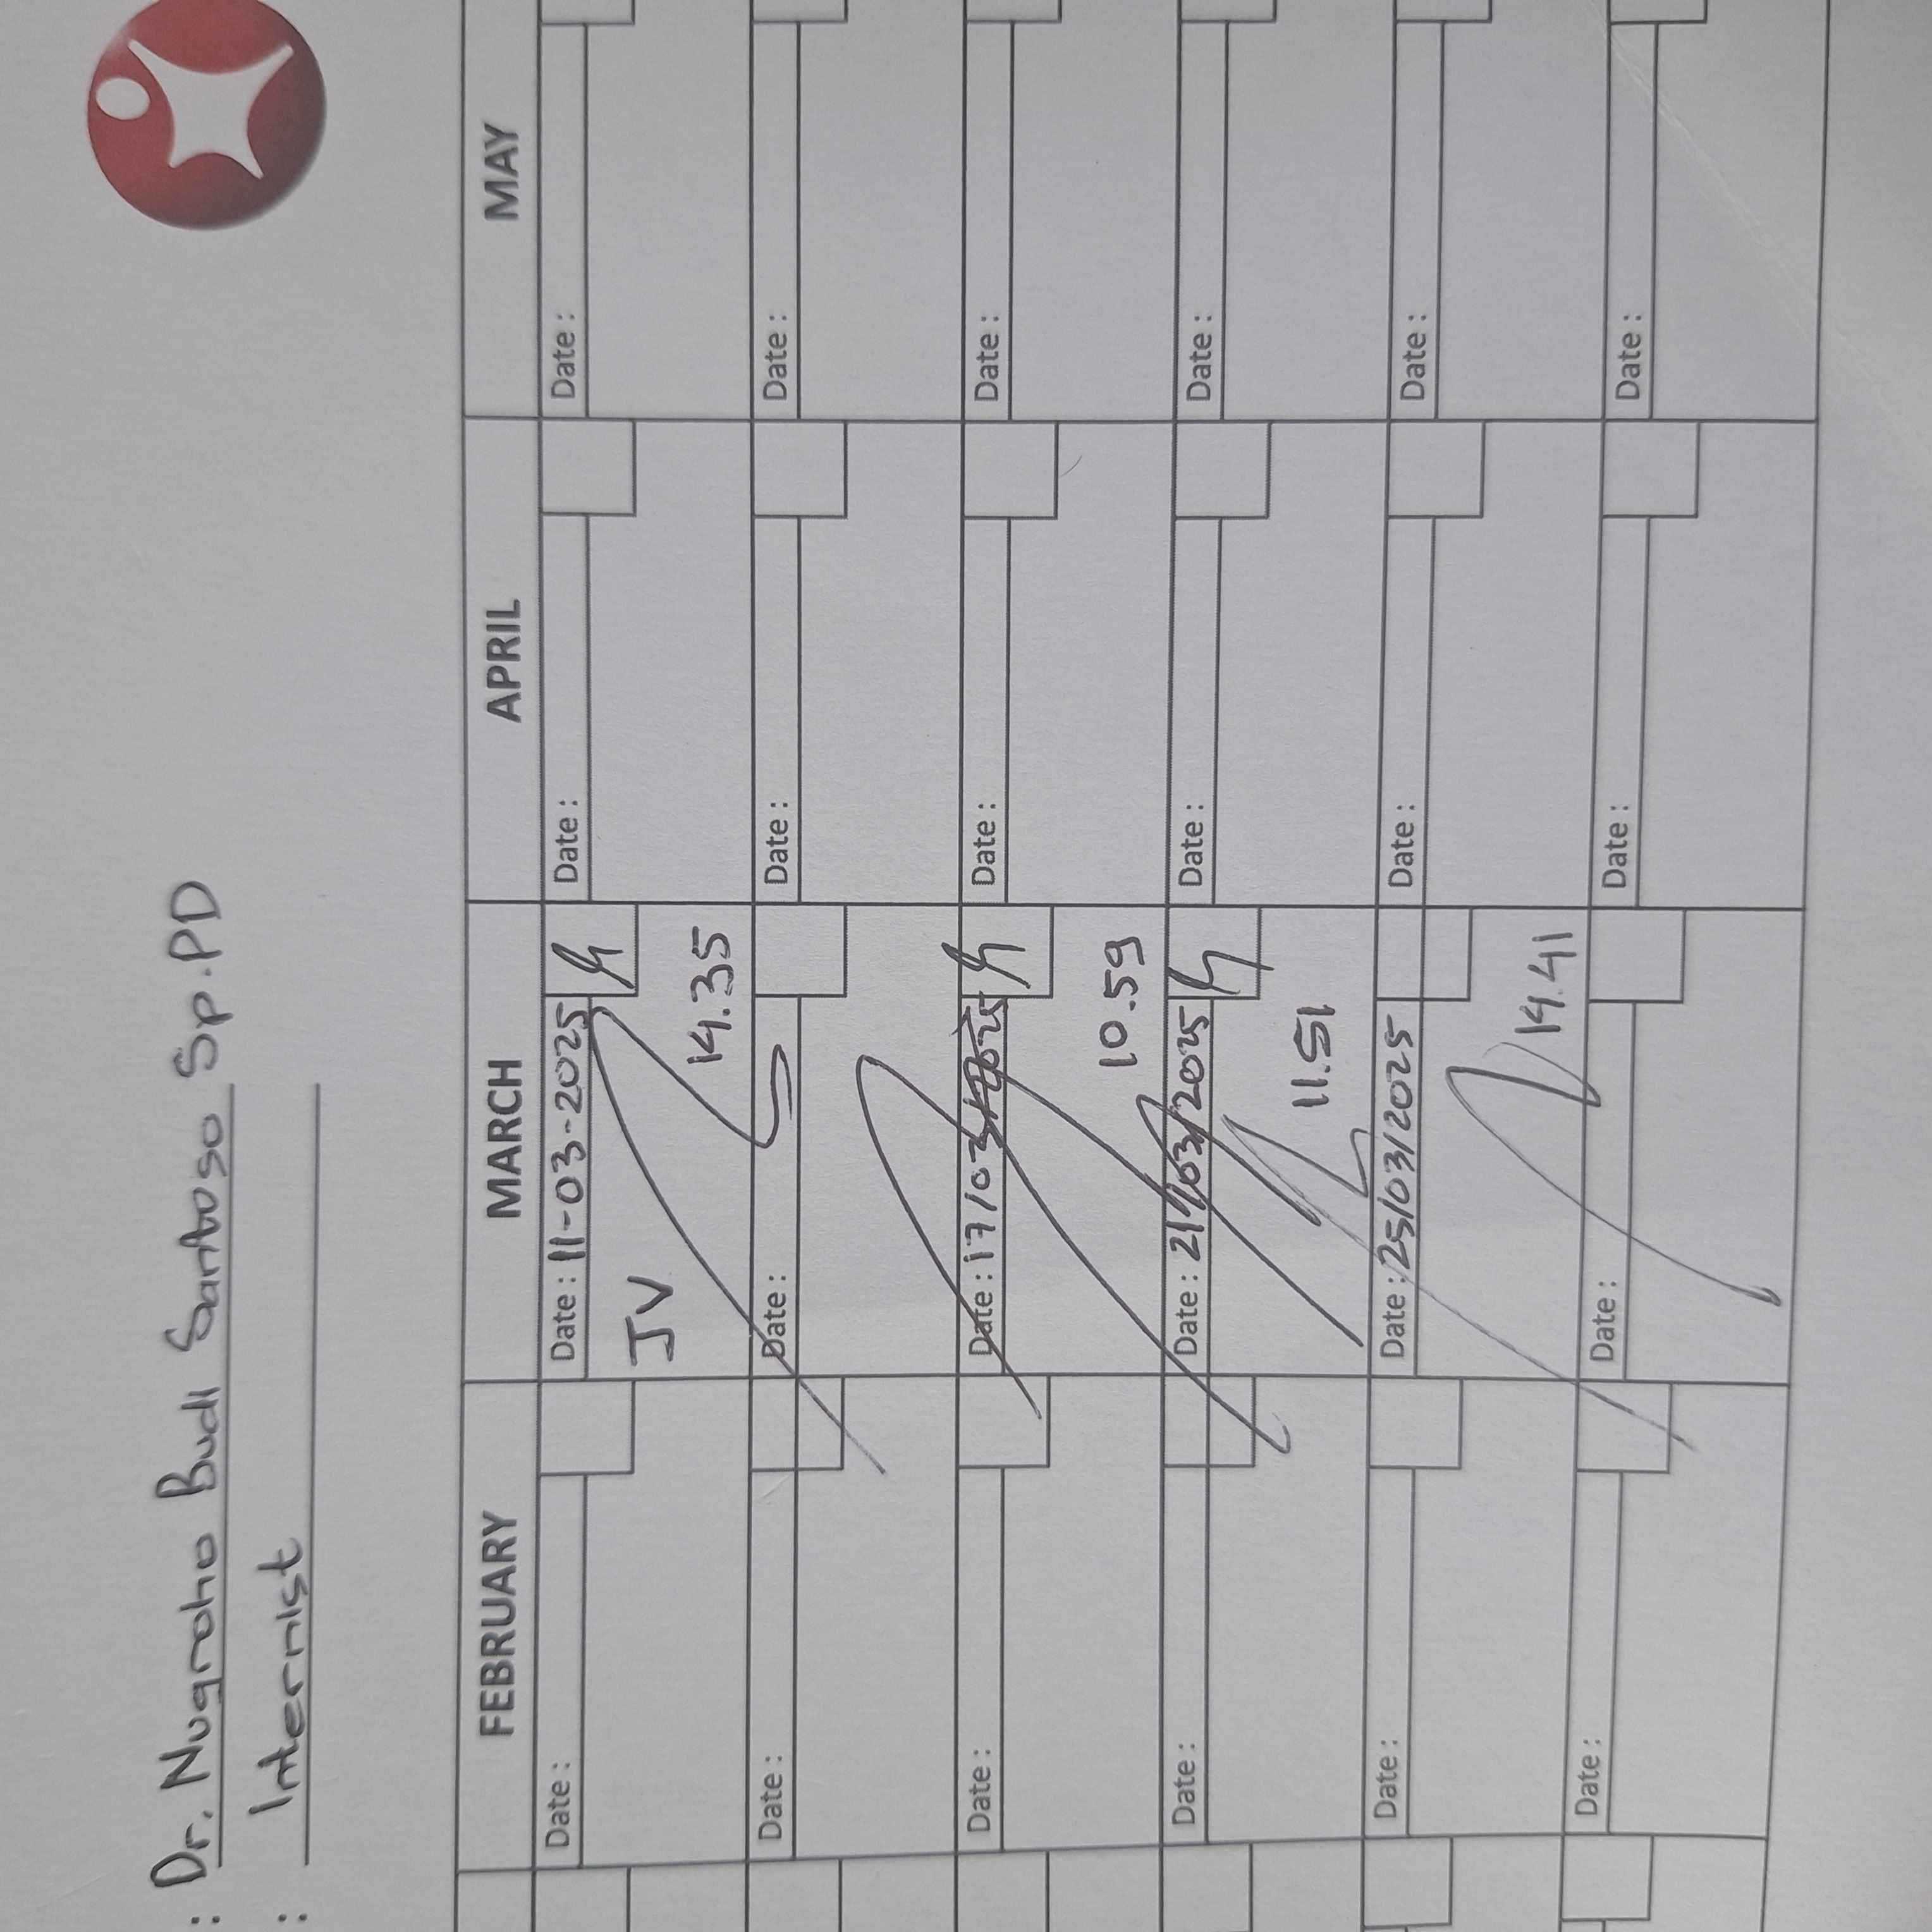 : Dr. Nugroho Budi Santoso Sp.PD
: Internist
FEBRUARY MARCH APRIL MAY
Date : Date : 11-03-2025 Date : Date :
JV 14.35
Date : Date : Date : Date :
Date : Date : 17/03/2025 Date : Date :
10.59
Date : Date : 21/03/2025 Date : Date :
11.51
Date : Date : 25/03/2025 Date : Date :
14.41
Date : Date : Date : Date :